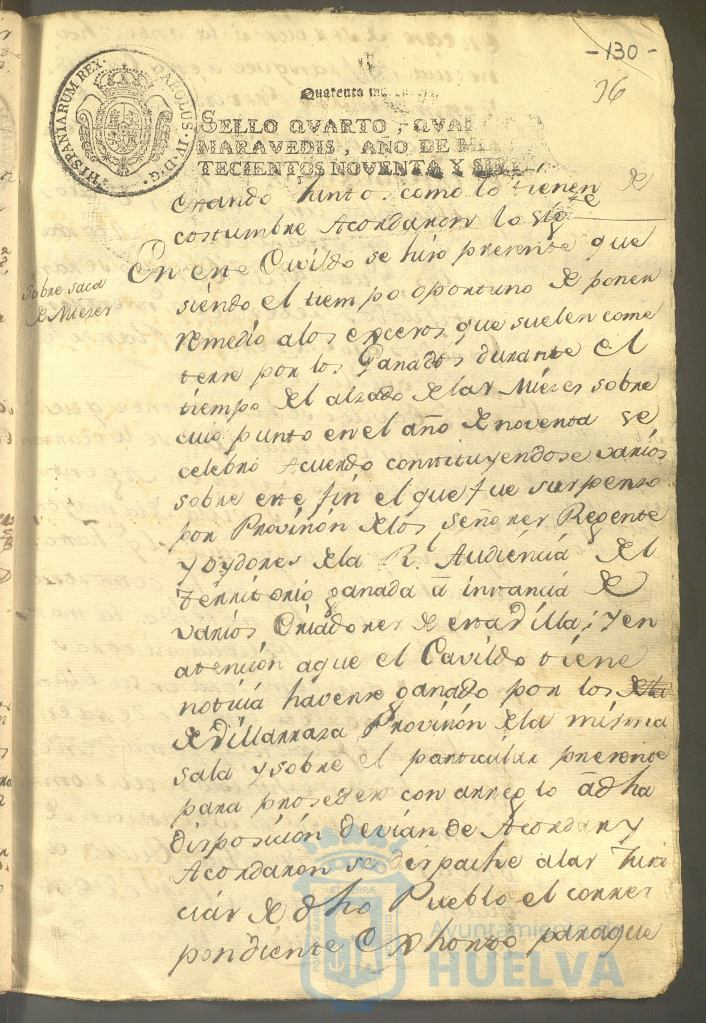 - 130 -
96
HISPANIARUM REX. CAROLUS. IV. D. G.
Quarenta
SELLO QVARTO, QVAR
MARAVEDIS, AÑO DE MIL
TECIENTOS NOVENTA Y SIETE
estando juntos como lo tienen de
costumbre Acordaron lo sigte
Sobre saca
de Miezes
En este Cavildo se hizo presente que
siendo el tiempo oportuno de poner
remedio a los excesos que suelen come
terse por los Ganados durante el
tiempo del alzado de las Miezes sobre
cuio punto en el año de noventa se
celebró Acuerdo constituyendose varios
sobre este fin el que fue suspenso
por Provision de los Señores Regente
y oydores de la R. Audiencia del
territorio ganada a instancia de
varios Criadores de esta Villa; y en
atención a que el Cavildo tiene
noticia haverse ganado por los
de Villarrasa Provision de la misma
sala y sobre el particular presente
para proseder con arreglo a dha
disposición devian de Acordar y
Acordaron se despache a las Justi
cias de dho Pueblo el corres
pondiente Exhorto para que
Ayuntamiento de
HUELVA